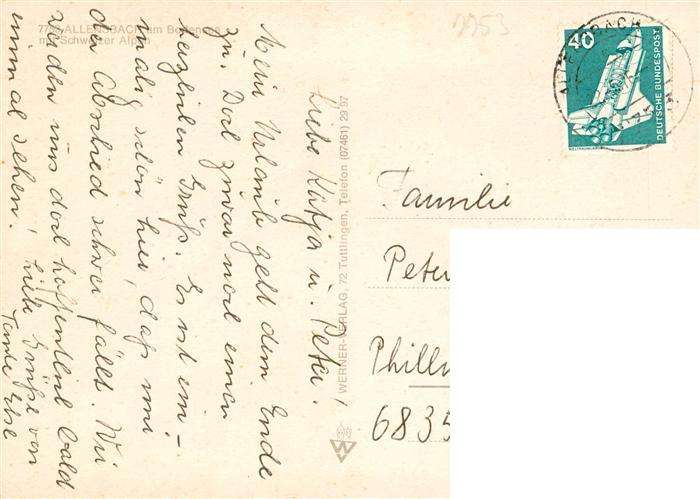 7753 ALLENSBACH am Bodensee
mit Schweizer Alpen
Liebe Katja u. Peter!
Mein Urlaub geht dem Ende
zu. Doch zuvor noch einen
herzlichen Gruß. Es ist ein-
malig schön hier, daß mir
der Abschied schwer fällt. Wir
werden uns doch hoffentlich bald
einmal sehen!
Liebe Grüße von
Tante Else
WERNER-VERLAG, 72 Tuttlingen, Telefon (07461) 29 97
W
7753
40
DEUTSCHE BUNDESPOST
Familie
Peter
6835